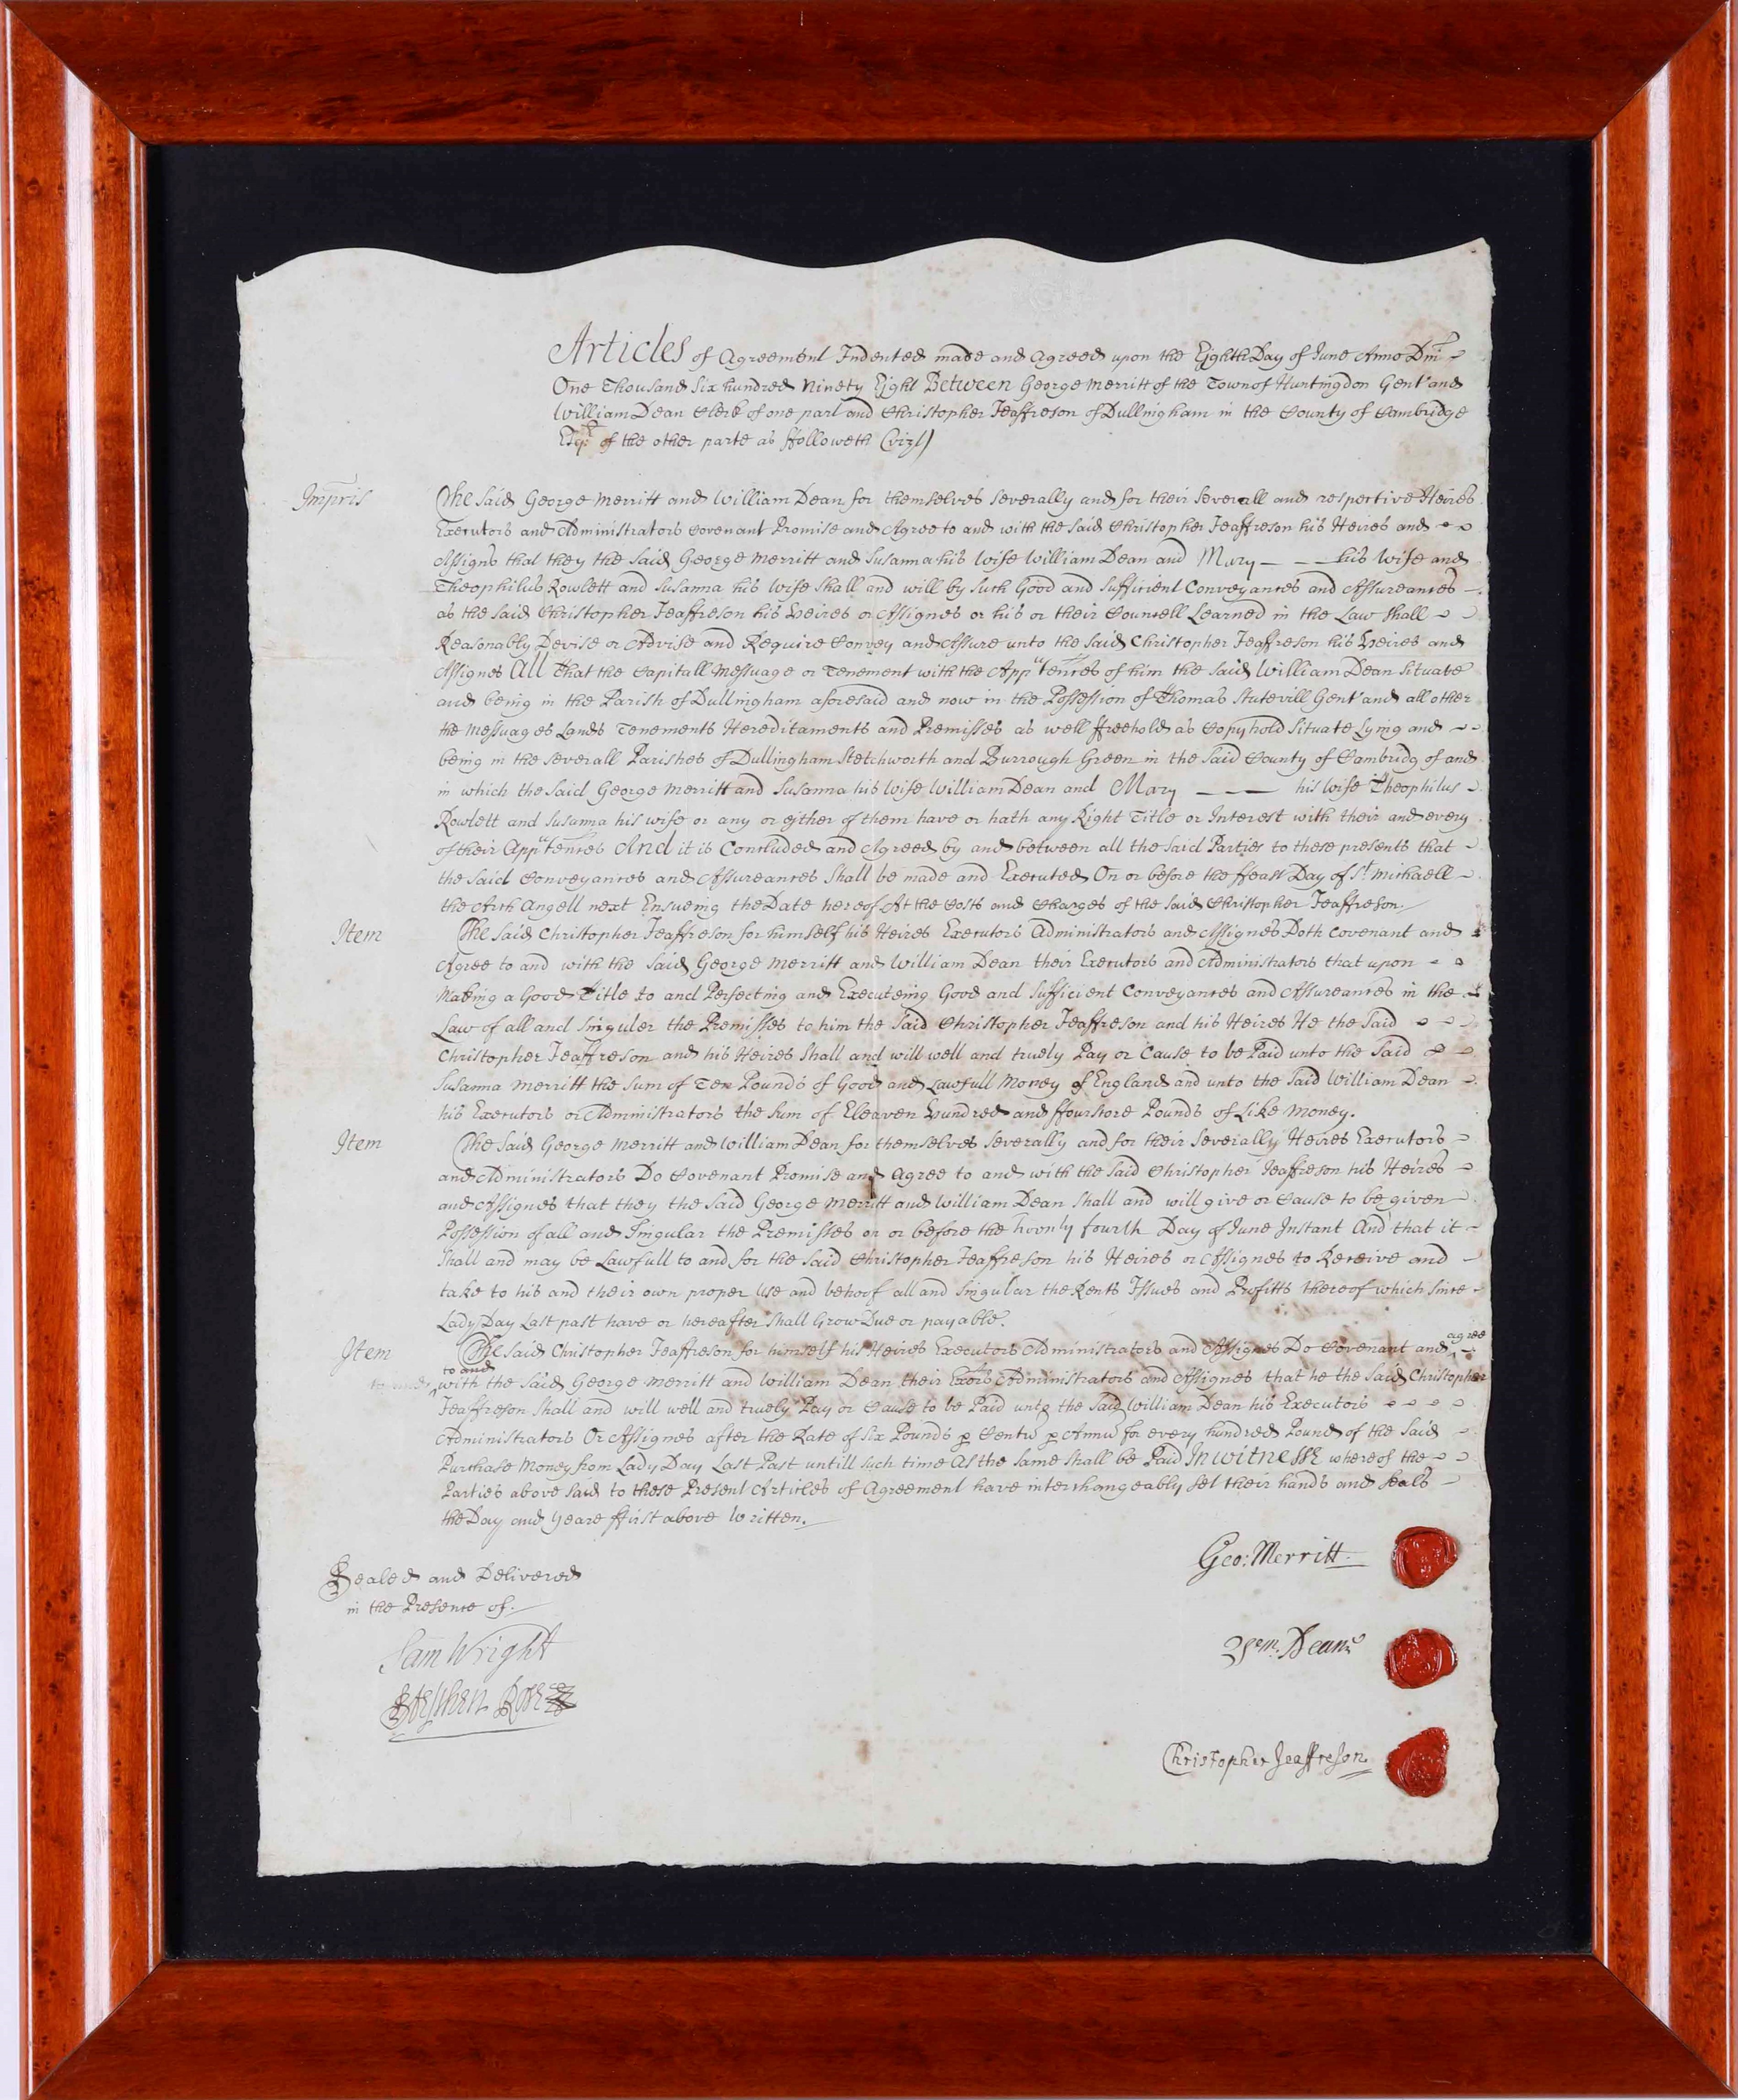 Articles of Agreement Indented made and Agreed upon the Eighth Day of June Anno Dm̄
One Thousand Six hundred Ninety Eight Between George Merritt of the Town of Huntingdon Gent and
William Dean Clerk of one part and Christopher Jeaffreson of Dullingham in the County of Cambridge
Esqr of the other parte as ffolloweth (vizt)
Impris The Said George Merritt and William Dean for themselves Severally and for their Severall and respective Heires
Executors and Administrators Covenant Promise and Agree to and with the Said Christopher Jeaffreson his Heires and
Assigns that they the Said George Merritt and Susanna his Wife William Dean and Mary — — — his Wife and
Theophilus Rowlett and Susanna his Wife Shall and will by such Good and Sufficient Conveyances and Assureances
as the Said Christopher Jeaffreson his Heires or Assignes or his or their Councell Learned in the Law Shall
Reasonably Devise or Advise and Require Convey and Assure unto the Said Christopher Jeaffreson his Heires and
Assignes All That the Capitall Messuage or Tenement with the Appurtences of him the Said William Dean Situate
and being in the Parish of Dullingham aforesaid and now in the Possession of Thomas Stutevill Gent and all other
the Messuages Lands Tenements Hereditaments and Premisses as well ffreehold as Copyhold Situate Lying and
being in the Severall Parishes of Dullingham Stetchworth and Burrough Green in the Said County of Cambridg of and
in which the Said George Merritt and Susanna his Wife William Dean and Mary — — — his Wife Theophilus
Rowlett and Susanna his wife or any or either of them have or hath any Right Title or Interest with their and every
of their Appurtences And it is Concluded and Agreed by and between all the Said Parties to these presents that
the Said Conveyances and Assureances Shall be made and Executed On or before the ffeast Day of St Michaell
the Arch Angell next Ensueing the Date hereof At the Costs and Charges of the Said Christopher Jeaffreson.
Item The Said Christopher Jeaffreson for himself his Heires Executors Administrators and Assignes Doth Covenant and
Agree to and with the Said George Merritt and William Dean their Executors and Administrators that upon
Making a Good Title to and Perfecting and Executeing Good and Sufficient Conveyances and Assureances in the
Law of all and Singuler the Premisses to him the Said Christopher Jeaffreson and his Heires He the Said
Christopher Jeaffreson and his Heires Shall and will well and truely Pay or Cause to be Paid unto the Said
Susanna Merritt the Sum of Ten Pounds of Good and Lawfull Money of England and unto the Said William Dean
his Executors or Administrators the Sum of Eleaven Hundred and ffourscore Pounds of Like Money.
Item The Said George Merritt and William Dean for themselves Severally and for their Severally Heires Executors
and Administrators Do Covenant Promise and Agree to and with the Said Christopher Jeaffreson his Heires
and Assignes that they the Said George Merritt and William Dean Shall and will give or Cause to be given
Possession of all and Singular the Premisses on or before the twenty fourth Day of June Instant And that it
Shall and may be Lawfull to and for the Said Christopher Jeaffreson his Heires or Assignes to Receive and
take to his and their own proper Use and behoof all and Singular the Rents Issues and Profitts thereof which Since
Lady Day Last past have or hereafter Shall Grow Due or payable.
Item The Said Christopher Jeaffreson for himself his Heires Executors Administrators and Assignes Do Covenant and agree
to and with the Said George Merritt and William Dean their Exors Administrators and Assignes that he the Said Christopher
Jeaffreson Shall and will well and truely Pay or Cause to be Paid unto the Said William Dean his Executors
Administrators Or Assignes after the Rate of Six Pounds p Centu p Annu for every hundred Pound of the Said
Purchase Money from Lady Day Last Past untill such time As the same Shall be Paid In witnesse whereof the
Parties above Said to these Present Articles of Agreement have interchangeably Set their hands and Seals
the Day and Yeare ffirst above Written.
Sealed and Delivered
in the Presence of.
Sam Wright
Stephen
Geo: Merritt
Wm. Deane
Christopher Jeaffreson